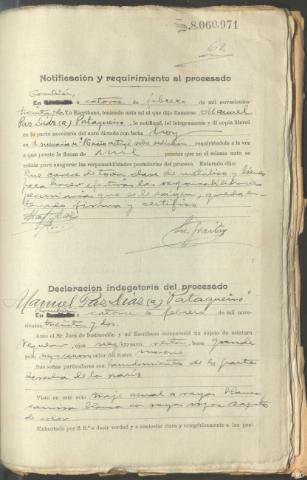 8.060.971
62
Notificación y requirimiento al procesado
En catorce de febrero de mil novecientos
treinta y dos Yo Escribano, teniendo ante mí el que dijo llamarse Manuel
Pas Dias (a) Pataqueiro, le notifiqué, leí íntegramente y di copia literal
en la parte necesaria del auto dictado con fecha
en sumario nº requiriéndole a la
a que preste la fianza de mil pesetas que en el mismo auto se
señala para asegurar las responsabilidades pecuniarias del proceso. Enterado dijo:
Que carece de toda clase de metálico y bienes
para hacer efectivas las responsabilidades
pecuniarias que se le exigen, queda en
firma y certifico
Declaración indagatoria del procesado
Manuel Pas Dias (a) "Pataqueiro"
En catorce de febrero de mil nove-
cientos treinta y dos.
Ante el Sr. Juez de Instrucción y mi Escribano compareció un sujeto de estatura
regular, ojos negros, nariz, boca grande
pelo negro color del rostro moreno
Sus señas particulares son hundimientos de la parte
derecha de la nariz
Viste en este acto traje usual a rayas blancas
camisa blanca con rayas rojas zapato
de color
Exhortado por S. S.ª a decir verdad y a contestar clara y completamente a las pre-